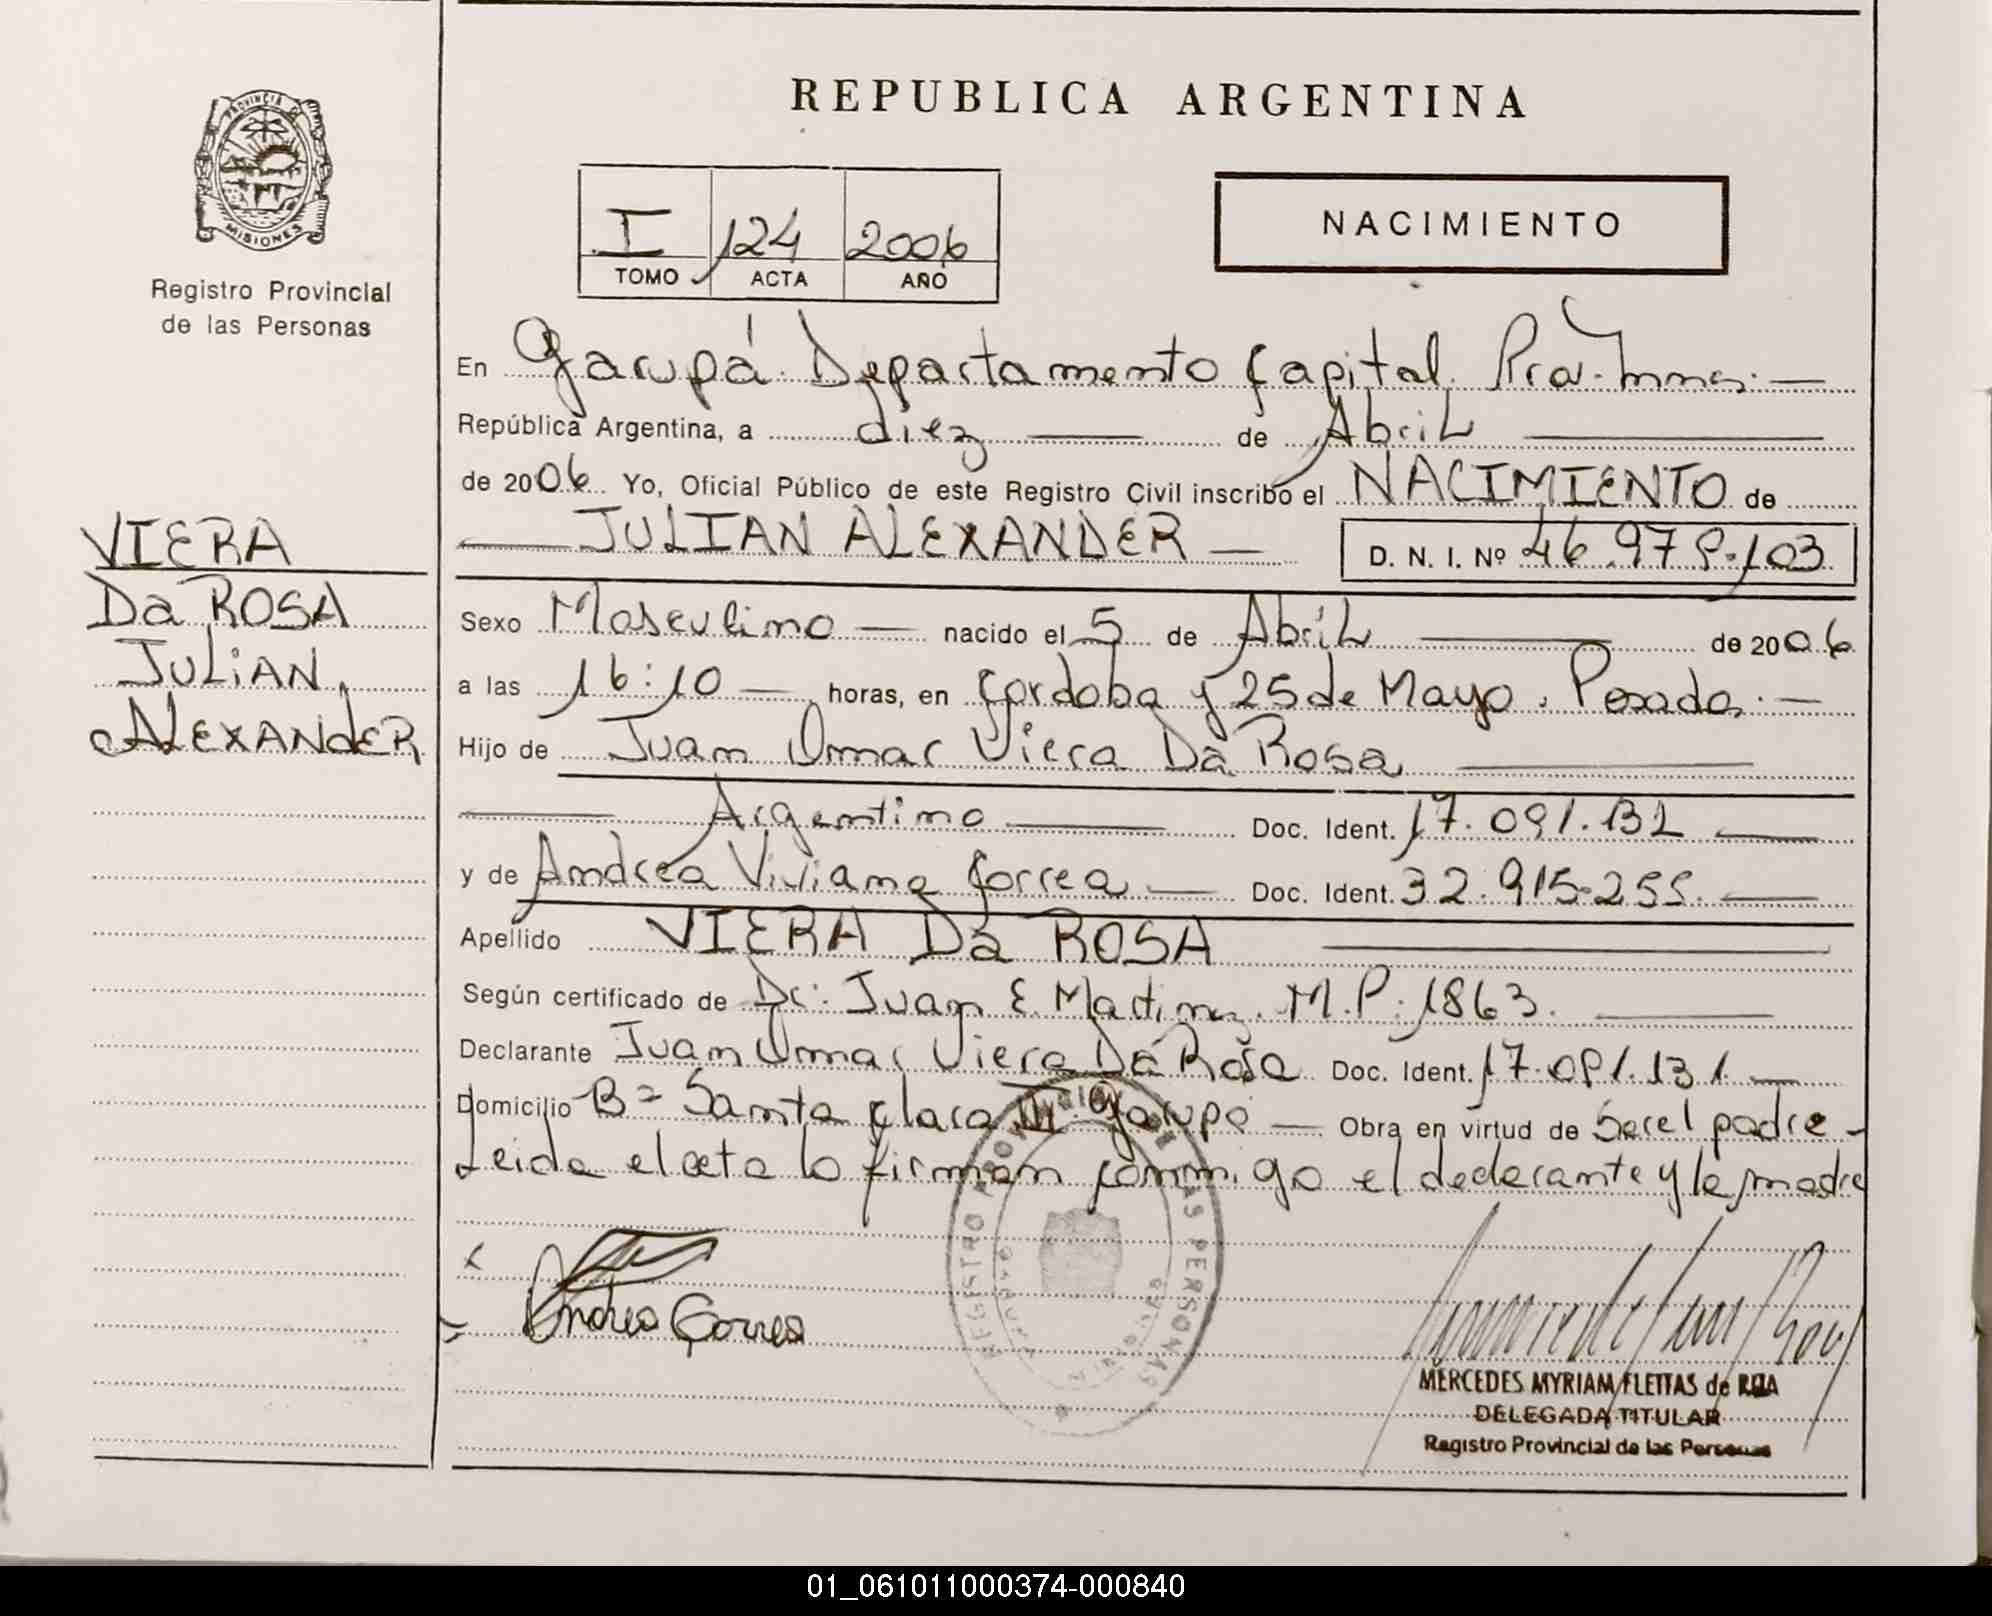 REPUBLICA ARGENTINA
PROVINCIA DE
MISIONES
Registro Provincial
de las Personas
I 124 2006
TOMO ACTA AÑO
NACIMIENTO
En Garupá. Departamento Capital. Pcia. Mnes.
República Argentina, a diez de Abril
de 2006 Yo, Oficial Público de este Registro Civil inscribo el NACIMIENTO de
JULIAN ALEXANDER D. N. I. Nº 46.979.103
VIERA
Da ROSA
JULIAN
ALEXANdER
Sexo Masculino nacido el 5 de Abril de 2006
a las 16:10 horas, en Cordoba y 25 de Mayo. Posadas.
Hijo de Juan Omar Viera Da Rosa
Argentino Doc. Ident. 17.091.131
y de Andrea Viviana Correa Doc. Ident. 32.915.255.
Apellido VIERA Da ROSA
Según certificado de Dr: Juan E. Martinez. M.P: 1863.
Declarante Juan Omar Viera Da Rosa Doc. Ident. 17.091.131.
Domicilio Bº Santa Clara II. Garupá Obra en virtud de ser el padre
Leida el acta la firman conmigo el declarante y la madre
REGISTRO PROVINCIAL DE LAS PERSONAS
Andrea Correa
MERCEDES MYRIAM FLEITAS de
DELEGADA TITULAR
Registro Provincial de las Personas
01_061011000374-000840